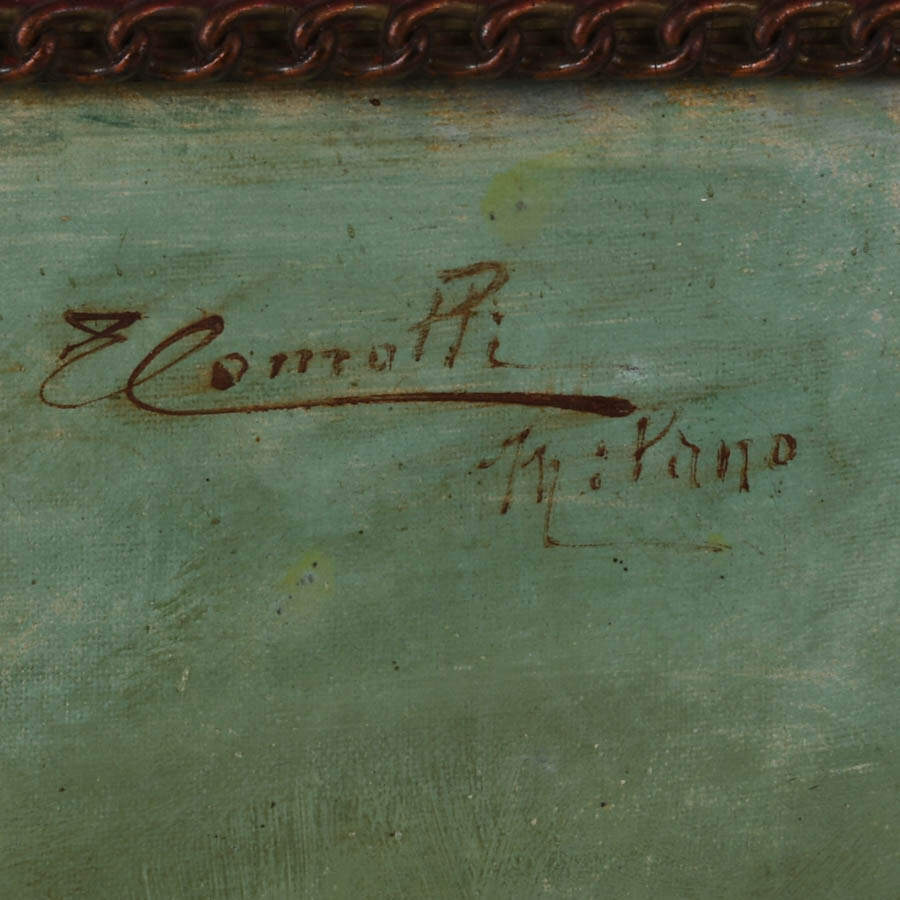 E Comotti
Milano